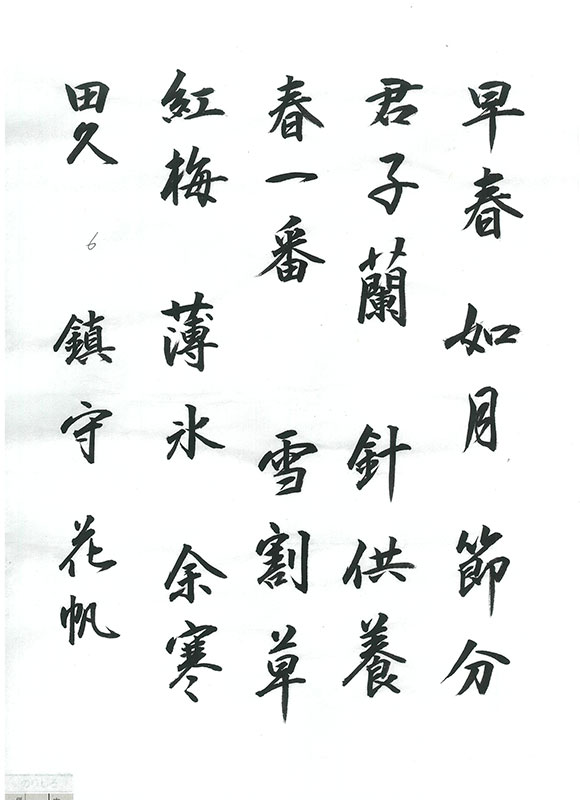 早春 如月 節分
君子蘭 針供養
春一番 雪割草
紅梅 薄氷 余寒
田久 6 鎮守 花帆